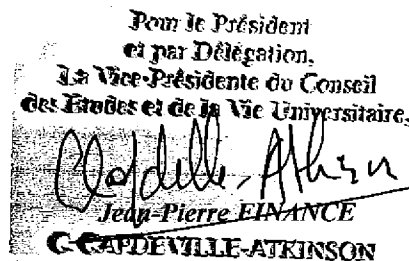 Pour le Président
et par Délégation,
La Vice-Présidente du Conseil
des Etudes et de la Vie Universitaire,
Jean-Pierre FINANCE
C. CAPDEVILLE-ATKINSON